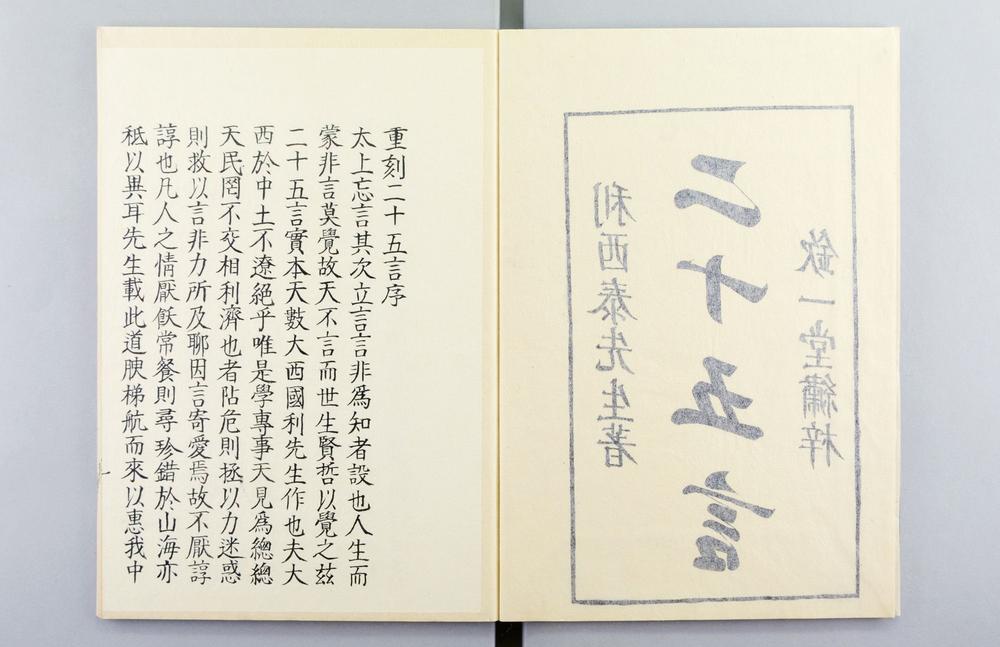 利西泰先生著
二十五言
欽一堂繡梓
重刻二十五言序
太上忘言其次立言言非爲知者設也人生而
蒙非言莫覺故天不言而世生賢哲以覺之茲
二十五言實本天數大西國利先生作也夫大
西於中土不遼絕乎唯是學專事天見爲總總
天民罔不交相利濟也者阽危則拯以力迷惑
則救以言非力所及聊因言寄愛焉故不厭諄
諄也凡人之情厭飫常餐則尋珍錯於山海亦
秪以異耳先生載此道腴梯航而來以惠我中